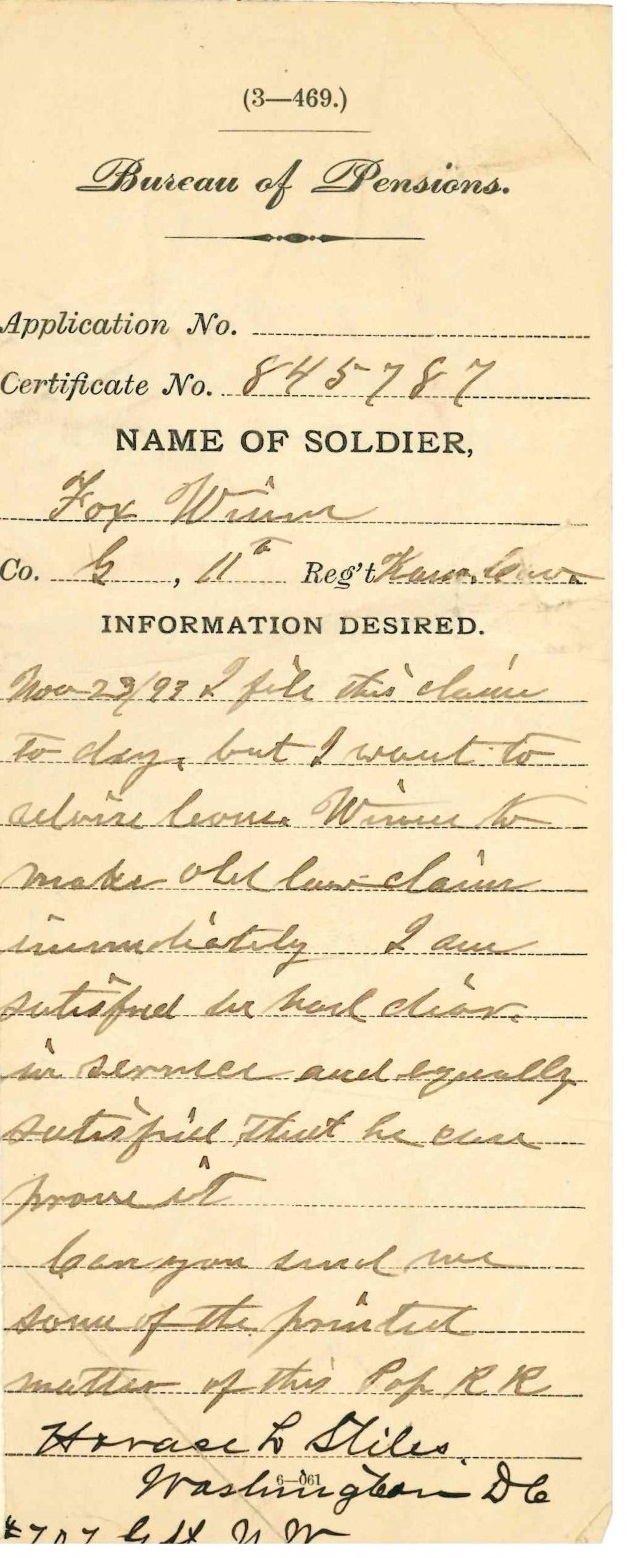 (3—469.)
Bureau of Pensions.
Application No.
Certificate No. 845787
NAME OF SOLDIER,
Fox Winne
Co. G, 11th Reg't Kans. Cav.
INFORMATION DESIRED.
Nov 23/93 I file this claim
to day, but I want to
advise Winne to
make old law claim
immediately I am
satisfied he had diar.
in service and equally
satisfied that he can
prove it
Can you send me
some of the printed
matter of this Pop R R
Horace L Stiles.
6—061
Washington D C
#707 G St N W